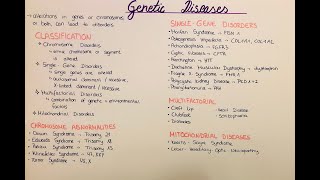 Genetic Diseases
• alterations in genes or chromosomes or both can lead to disorders
CLASSIFICATION
• Chromosome Disorders
↳ entire chromosome or segment is altered
• Single-Gene Disorders
↳ single genes are altered
↳ autosomal dominant / recessive
X-linked dominant / recessive
• Multifactorial Disorders
↳ combination of genetic + environmental factors
• Mitochondrial Disorders
CHROMOSOME ABNORMALITIES
• Down Syndrome - Trisomy 21
• Edwards Syndrome - Trisomy 18
• Patau Syndrome - Trisomy 13
• Klinefelter Syndrome
• Turner Syndrome
SINGLE-GENE DISORDERS
• Marfan Syndrome - FBN 1
• Osteogenesis Imperfecta - COL1A1, COL1A2
• Achondroplasia - FGFR3
• Cystic Fibrosis - CFTR
• Huntington - HTT
• Duchenne Muscular Dystrophy - dystrophin
• Fragile X Syndrome - FMR 1
• Polycystic Kidney Disease - PKD 1+2
• Phenylketonuria - PAH
MULTIFACTORIAL
• Cleft Lip
• Heart Disease
• Clubfoot
• Diabetes
MITOCHONDRIAL DISEASES
• Leber Hereditary Optic Neuropathy